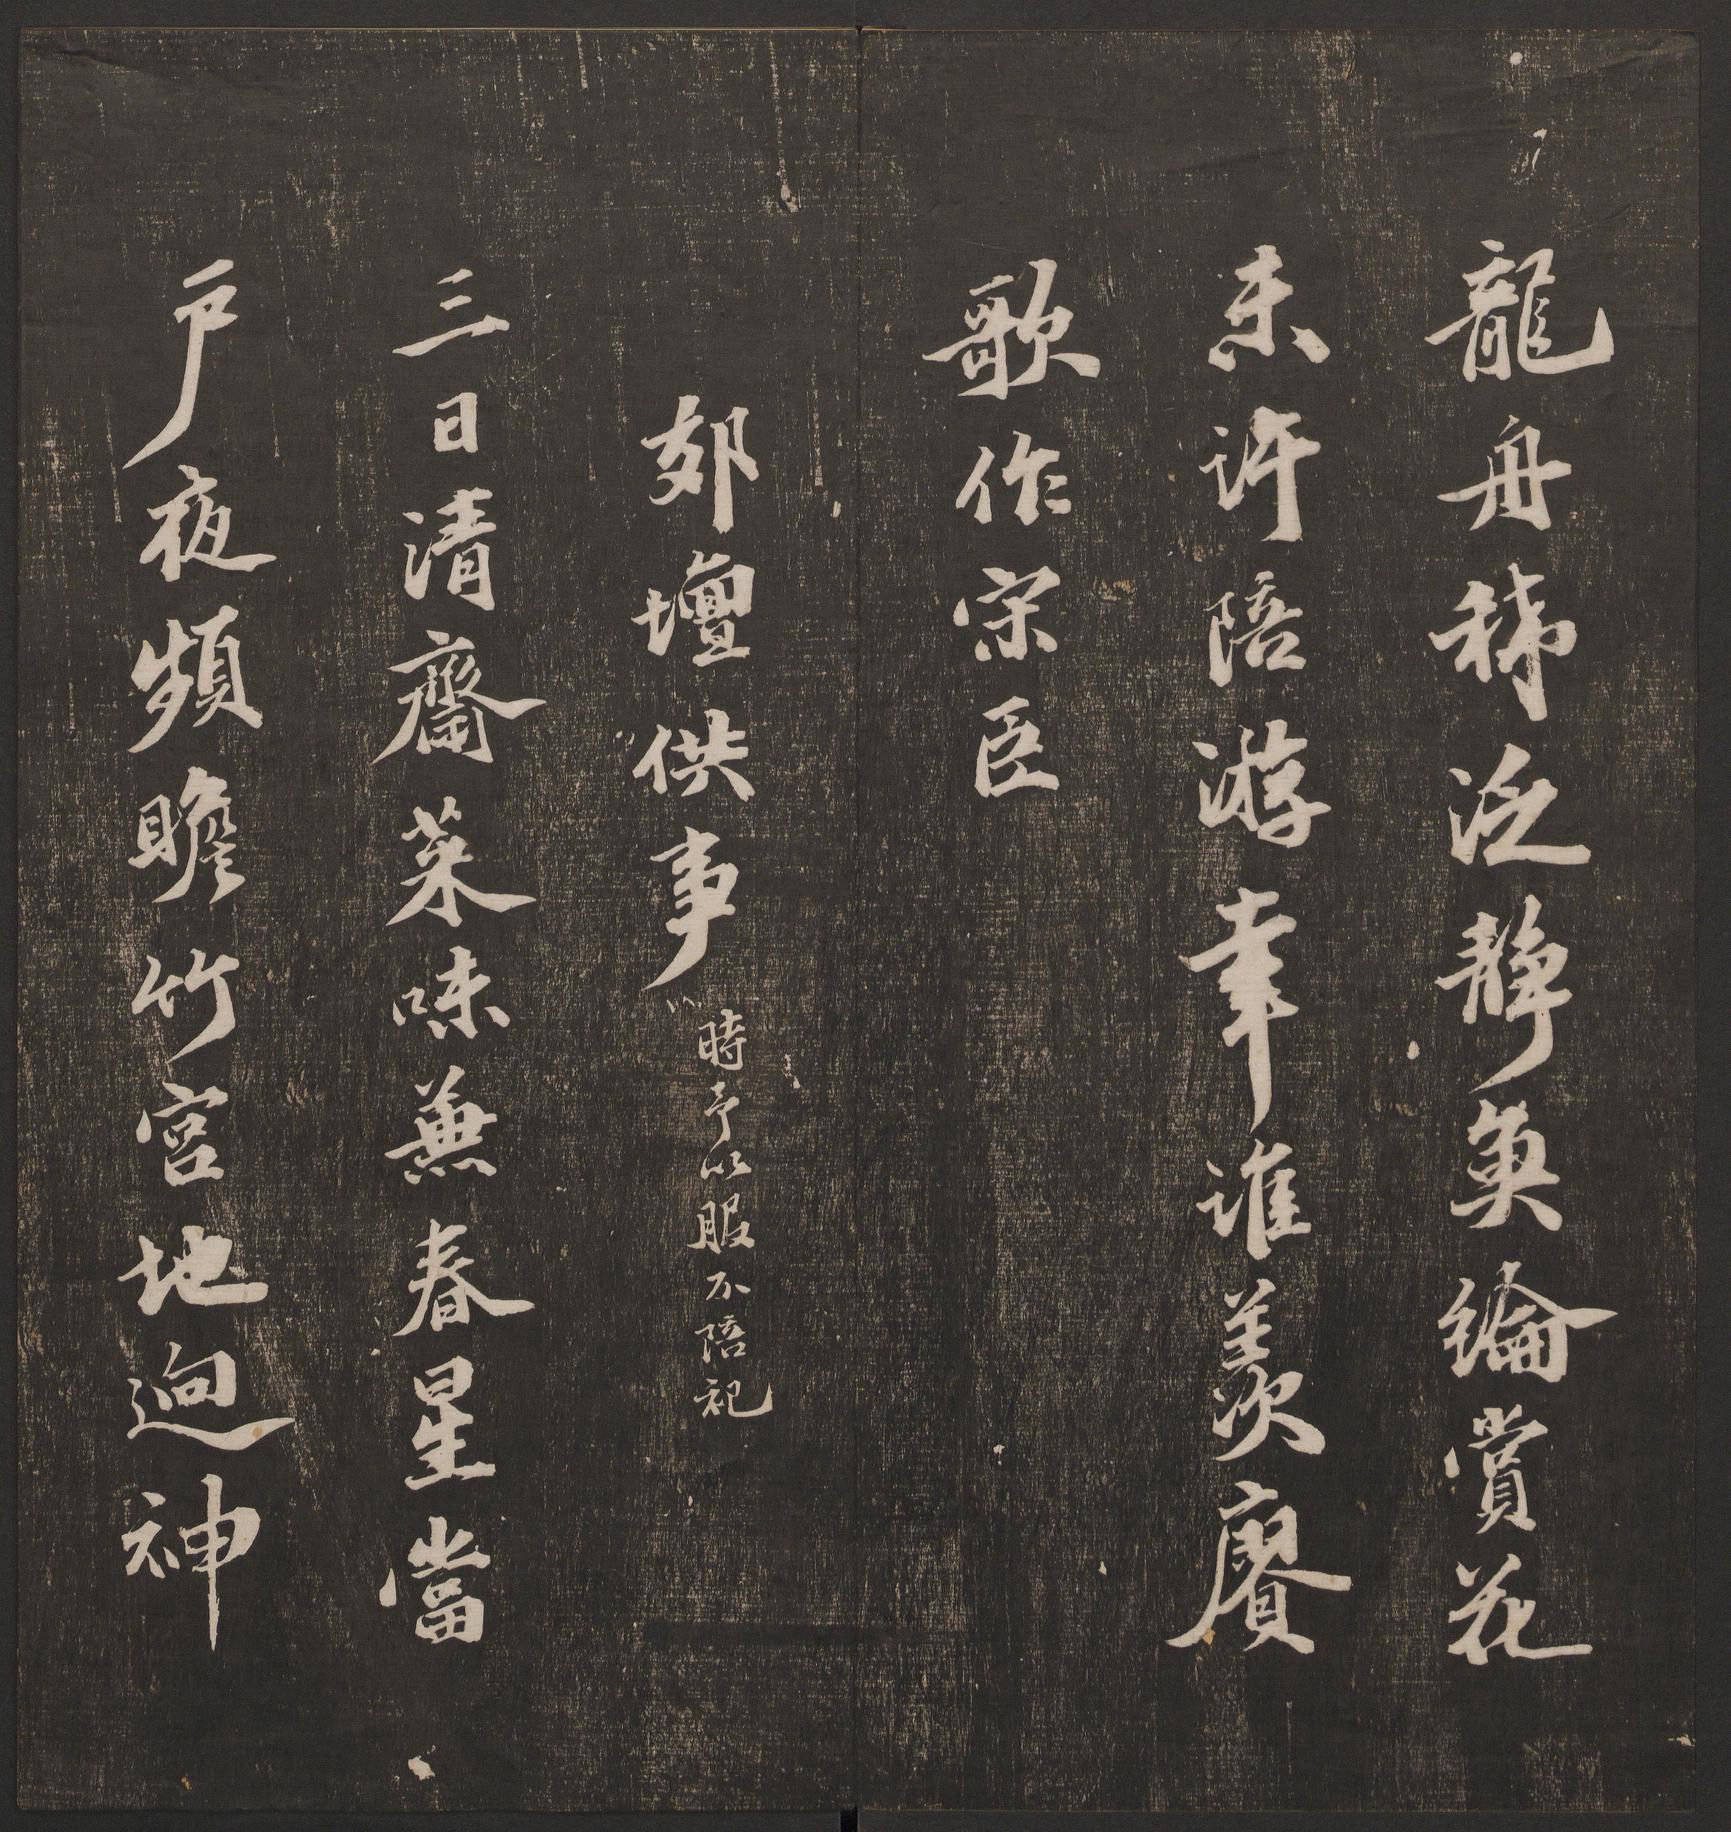 龍舟稀泛靜魚綸賞花
未許陪游幸誰羨賡
歌作宋臣
郊壇供事 時予以服不陪祀
三日清齋菜味兼春星當
戶夜頻瞻竹宮地迥神